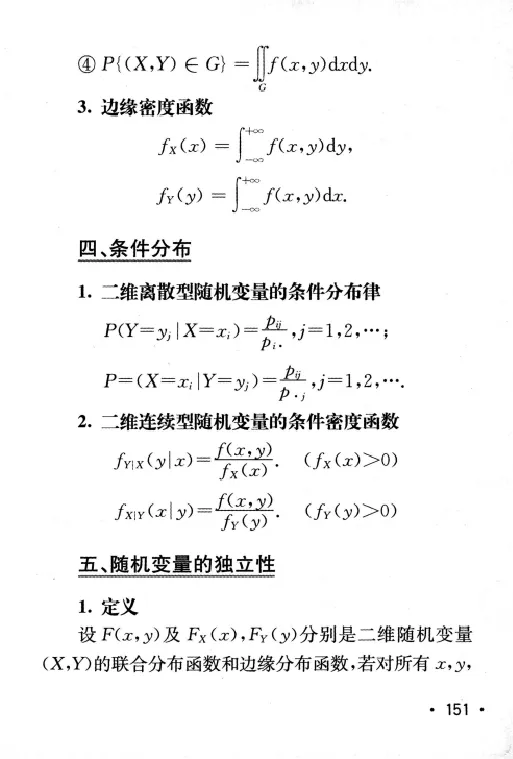 ④ P{(X,Y)∈G}=∬_G f(x,y)dxdy.
3. 边缘密度函数
f_X(x)=∫_{-∞}^{+∞} f(x,y)dy,
f_Y(y)=∫_{-∞}^{+∞} f(x,y)dx.
四、条件分布
1. 二维离散型随机变量的条件分布律
P(Y=y_j|X=x_i)=p_{ij}/p_{i·},j=1,2,…;
P=(X=x_i|Y=y_j)=p_{ij}/p_{·j},j=1,2,….
2. 二维连续型随机变量的条件密度函数
f_{Y|X}(y|x)=f(x,y)/f_X(x). (f_X(x)>0)
f_{X|Y}(x|y)=f(x,y)/f_Y(y). (f_Y(y)>0)
五、随机变量的独立性
1. 定义
设 F(x,y)及 F_X(x),F_Y(y)分别是二维随机变量
(X,Y)的联合分布函数和边缘分布函数,若对所有 x,y,
· 151 ·